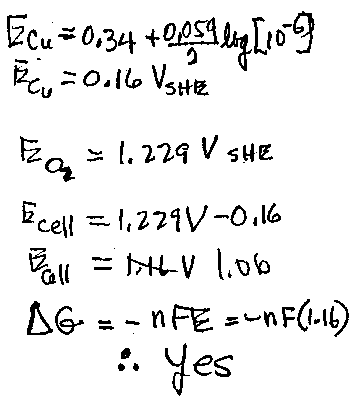 E_Cu = 0.34 + 0.059/2 log[10^-6]
E_Cu = 0.16 V_SHE
E_O2 = 1.229 V SHE
E_cell = 1.229V - 0.16
E_cell = 1.06
ΔG = -nFE = -nF(1.16)
∴ Yes